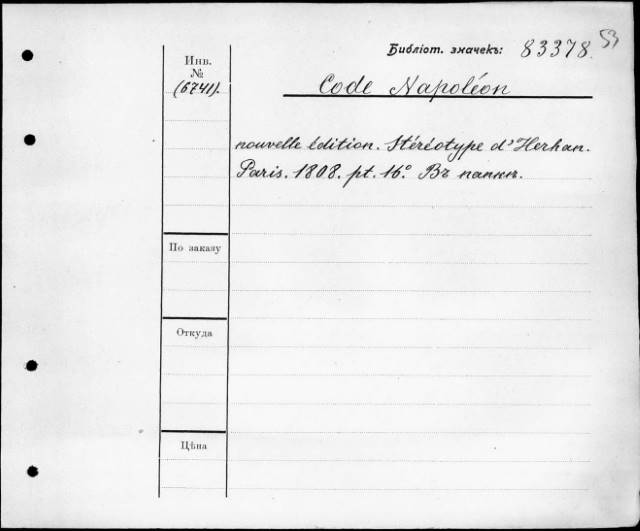 Библіот. значекъ: 83378.
53
Инв.
№
(6741).
Code Napoléon
nouvelle édition. Stéréotype d'Herhan.
Paris. 1808. pt. 16° Въ папкѣ.
По заказу
Откуда
Цѣна